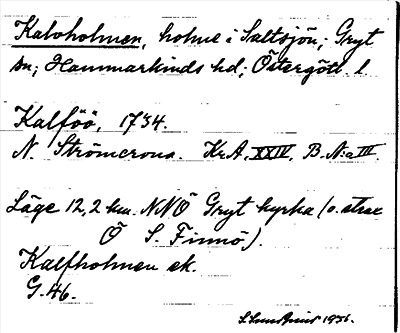 Kalvholmen, holme i Saltsjön; Gryt
sn; Hammarkinds hd; Östergötl. l.
Kalföö, 1734.
N. Strömcrona. KrA, XXIV, B. N:o III.
Läge 12,2 km. NNÖ Gryt kyrka (o. strax
Ö S. Finnö).
Kalfholmen ek.
G.46.
1936.